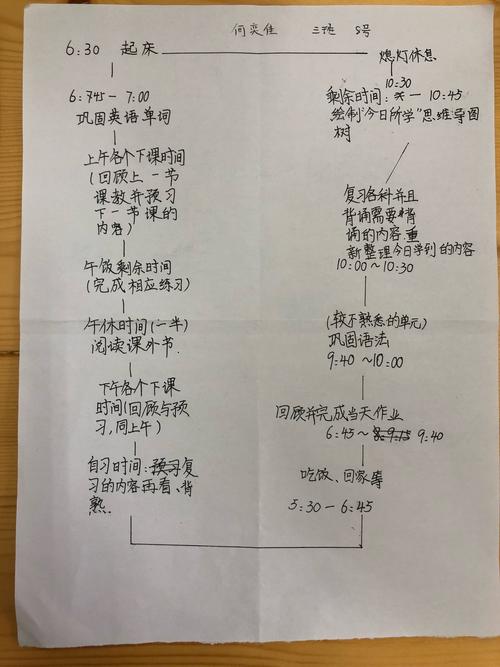 何奕佳 三班 5号
6:30 起床
6:45 — 7:00
巩固英语单词
上午各个下课时间
(回顾上一节
课教并预习
下一节课的
内容)
午饭剩余时间
(完成相应练习)
午休时间(一半)
阅读课外书
下午各个下课
时间(回顾与预
习,同上午)
自习时间:复
习的内容再看、背
熟.
熄灯休息
10:30
剩余时间: — 10:45
绘制"今日所学"思维导图
树
复习各科并且
背诵需要背
诵的内容.重
新整理今日学到的内容
10:00~10:30
(较不熟悉的单元)
巩固语法
9:40~10:00
回顾并完成当天作业
6:45~8:9:15 9:40
吃饭、回家等
5:30—6:45